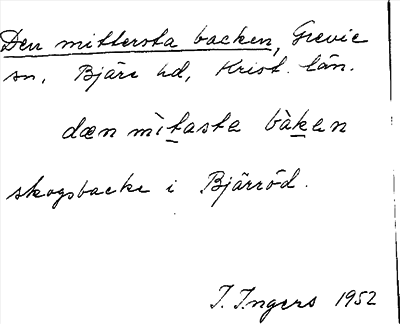 Den mittersta backen, Grevie
sn, Bjäre hd, Krist. län.
dæn mìtasta bàkan
skogsbacke i Bjärröd.
I. Ingers 1952